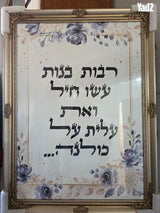 Yad2
רבות בנות
עשו חיל
ואת
עלית על
כולנה...